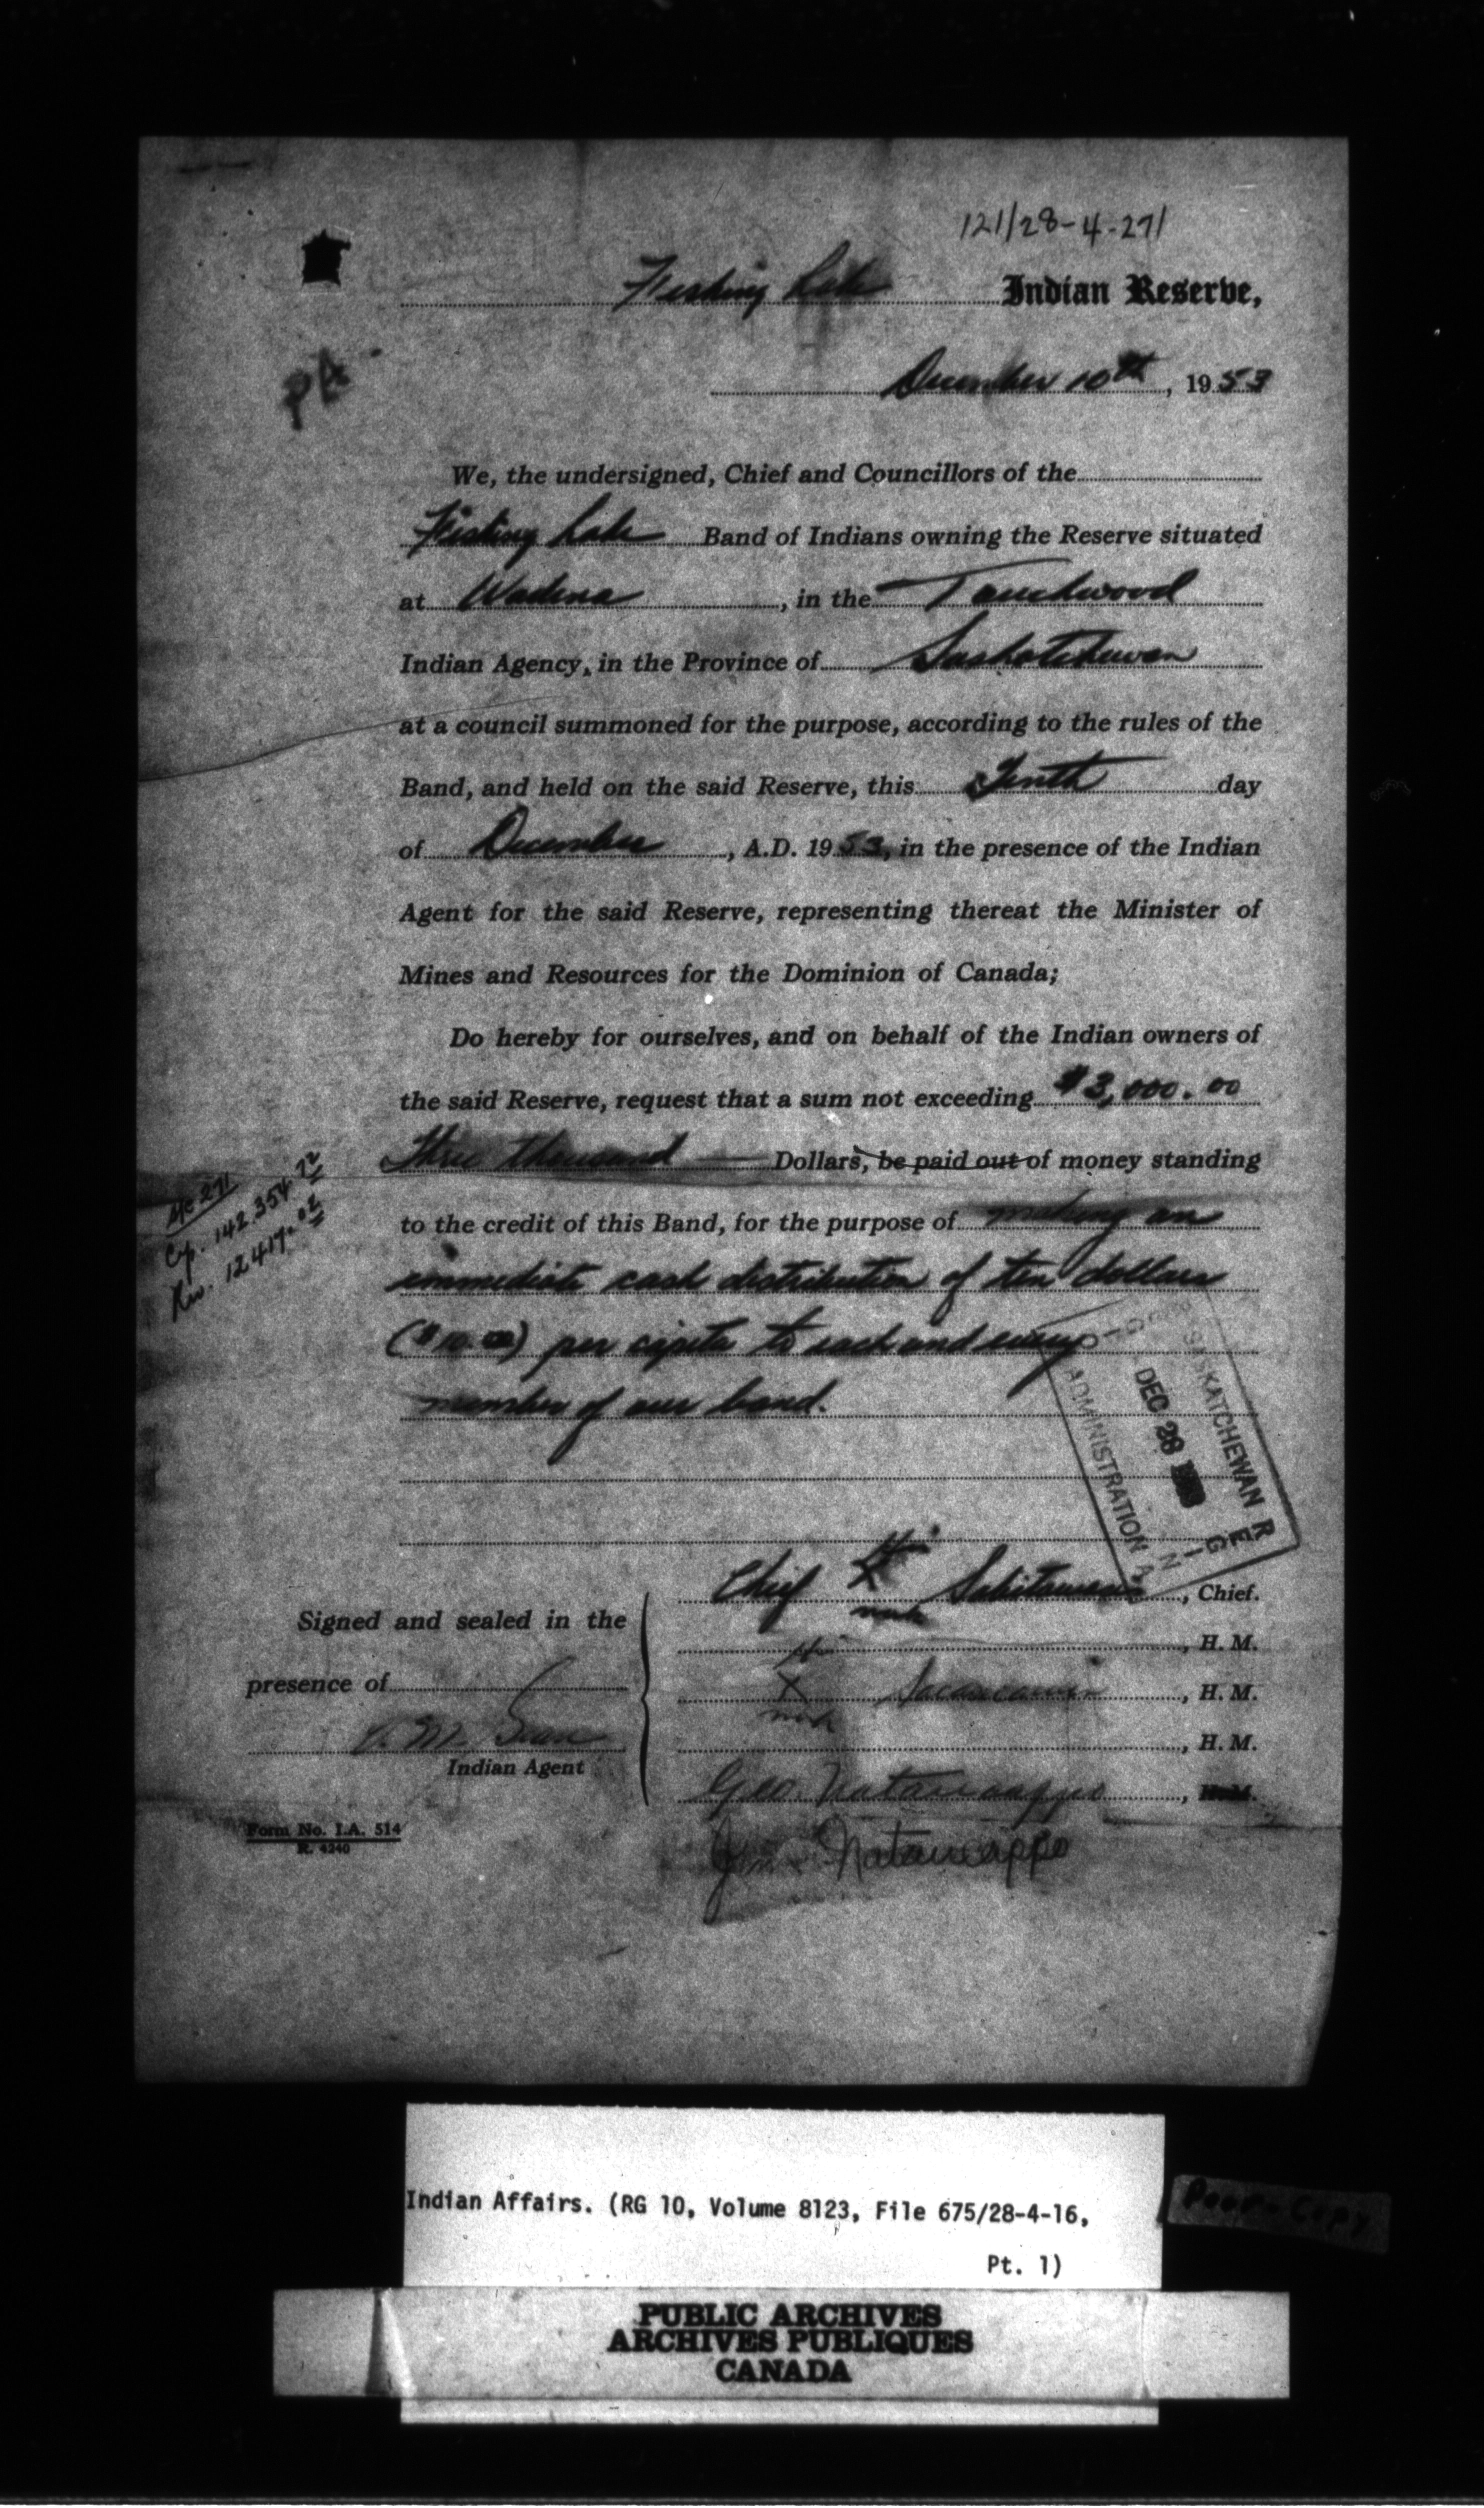 121/28-4-271
Fishing Lake Indian Reserve,
December 10th, 1953
We, the undersigned, Chief and Councillors of the
Fishing Lake Band of Indians owning the Reserve situated
at Wadena, in the Touchwood
Indian Agency, in the Province of Saskatchewan
at a council summoned for the purpose, according to the rules of the
Band, and held on the said Reserve, this Tenth day
of December, A.D. 1953, in the presence of the Indian
Agent for the said Reserve, representing thereat the Minister of
Mines and Resources for the Dominion of Canada;
Do hereby for ourselves, and on behalf of the Indian owners of
the said Reserve, request that a sum not exceeding $3,000.00
Three thousand — Dollars, be paid out of money standing
to the credit of this Band, for the purpose of making an
immediate cash distribution of ten dollars
($10.00) per capita to each and every
member of our band.
271
Cap. 142.354.72
Rev. 12417.02
SASKATCHEWAN REGION
DEC 28
ADMINISTRATION
Chief X mark, Chief.
, H. M.
X mark, H. M.
, H. M.
Geo. Natawcappo, H. M.
Jim Natawcappo
Signed and sealed in the
presence of
Indian Agent
Form No. I.A. 514
R. 4240
Indian Affairs. (RG 10, Volume 8123, File 675/28-4-16,
Pt. 1)
Poor-Copy
PUBLIC ARCHIVES
ARCHIVES PUBLIQUES
CANADA